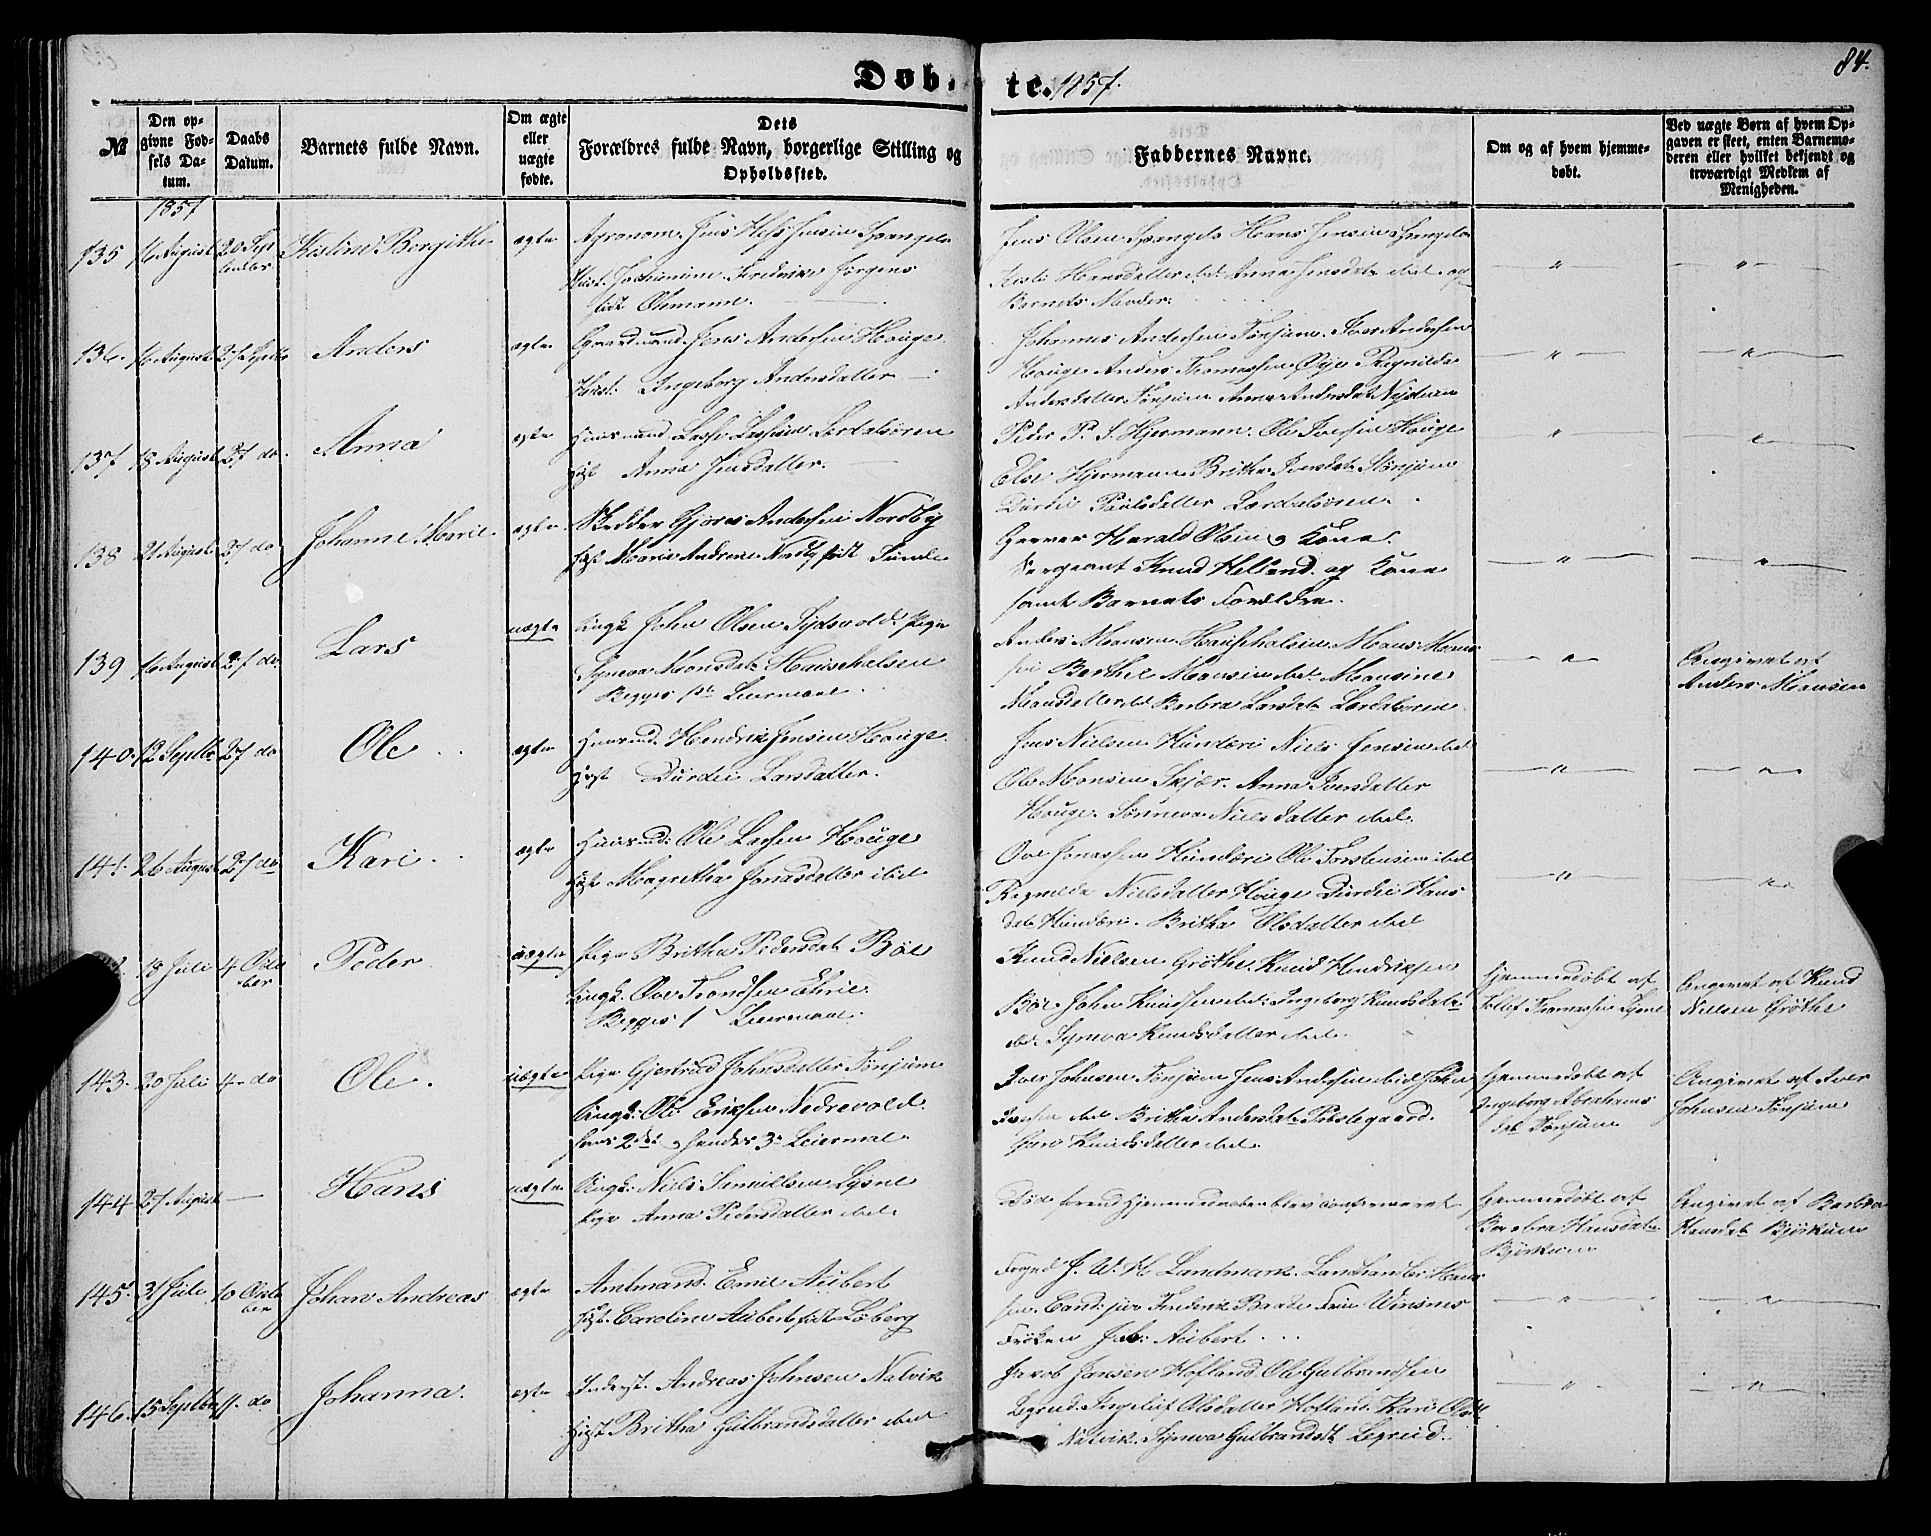 84.
Døbte. 1857.
№
Den opgivne Fødsels Datum.
Daabs Datum.
Barnets fulde Navn.
Om ægte eller uægte fødte.
Dets Forældres fulde Navn, borgerlige Stilling og Opholdssted.
Faddernes Navne.
Om og af hvem hjemmedøbt.
Ved uægte Børn af hvem Opgaven er skeet, enten Barnemoderen eller hvilket bekjendt og troværdigt Medlem af Menigheden.
1857
135 16 August 20 September Kistine Borgithe ægte Agronom Jens Jensen Spangelo
Hust. Jochimine Fredrike Jørgens
født Ohmann.
Jens Olsen Spangelo Hans Jensen Spangelo
Hansdatter ibd. Anna Jensdatr ibd. og
Barnets Moder. " "
136. 16 August 27 Septbr Anders ægte Gaardmand Jens Andersen Houge
Hust: Ingeborg Andersdatter
Johannes Andersen Tønjum. Iver Andersen
Houge Anders Thomassen Øye Ragnilde
Andersdatter Tønjum Anna Andersdat " "
137 18 August 27 do. Anna ægte Huusmand Lasse Lassesen Lærdalsøren
Hust Anna Jensdatter.
Peder P. S. Hjermann. Ole Iversen Houge
Else Hjermann Britha Iversdatr Tønjum
Durdei Pålsdatter Lærdalsøren. " "
138 21 August 27 do Johanne Marie ægte Skrædder Gjøres Andersen Nordby
Hust Marie Andrene Nordby født
Garver Harald Olsen og Kone.
Sergeant Knud Helland og Kone
samt Barnets Forældre. " "
139 16 August 27 do Lars uægte Ungk. John Olsen Sydsvold Pige
Synneva Monsdatr
Begges 1ste Leiermaal
Anders Monsen Mons Monsen
Barthe Monsen ibd. Monsine
Monsdatter ibd Barbra Larsdatr Lærdalsøren " Angivet af
Anders Monsen
140. 12 Septbr 27 do Ole ægte Huusmd. Hendrik Jensen Houge
Hust Durdei Larsdatter.
Jens Nielsen Hunderi Niels Jensen ibd
Ole Monsen Skjær. Anna Iversdatter
Houge. Sønneva Nielsdatter ibd. " "
141. 26 August 27 do Kari ægte Huusmd: Ole Lassen Houge
Hust Magretha Jonasdatter ibid
Ove Jonassen Hunderi Ole Torstensen ibd
Ragnilda Nielsdatter Houge Durdei Hans
dat Hunderi. Britha Olsdatter ibd " "
18 Juli 4 October Peder uægte Pige Britha Pedersdat Bøe
Ungk. Ove Trondsen Ehrie
Begges 1 Leiermaal.
Knud Nielsen Grøthe Knud Hendriksen
Bøe John Knudsen ibd: Ingeborg Knudsdatr
ibd. Synneva Knudsdatter ibd. Hjemmedøbt af
Tollef Thomassen Lysne Angivet af Knud
Nielsen Grøthe
143. 20 Juli 4 do Ole. uægte Pige Gjertrud Johnsdatter Tønjum
Ungk. Ole Eriksen Nedrevold
hans 2det og hendes 3e Leiermaal.
Iver Johnsen Tønjum Jens Andersen ibid John
ibd Britha Andersdatr Præstegaard.
Knudsdatter ibd. Hjemmedøbt af
Ingeborg Abrahams
dat Tønjum Angivet af Iver
Johnsen Tønjum
144 27 August — Hans uægte Ungk: Niels Samuelsen Lysne
Pige Anna Pedersdatter ibd.
Døde førend Hjemmedaaben blev confirmeret Hjemmedøbt af
Barbra Hansdatr
Bjørkum Angivet af Barbra
Hansdat Bjørkum
145. 31 Juli 10 October Johan Andreas ægte Amtmand Emil Aubert
Hust. Caroline Aubert født Løberg
Foged J. W. H. Landmark. Landhandler Hansen
Cand: jur Frederik Brode Frue Winsnes
Frøken Aubert " "
146. 15 Septbr 11 do Johanna. ægte Inderst. Andreas Johnsen Natvik
Hust Britha Gulbrandsdatter ibd
Jacob Jansen Hofland. Ole Gulbrandsen
Legreid. Olsdatter Hofland. Kari
Natvik. Synneva Gulbrandsdr Legreid. " "